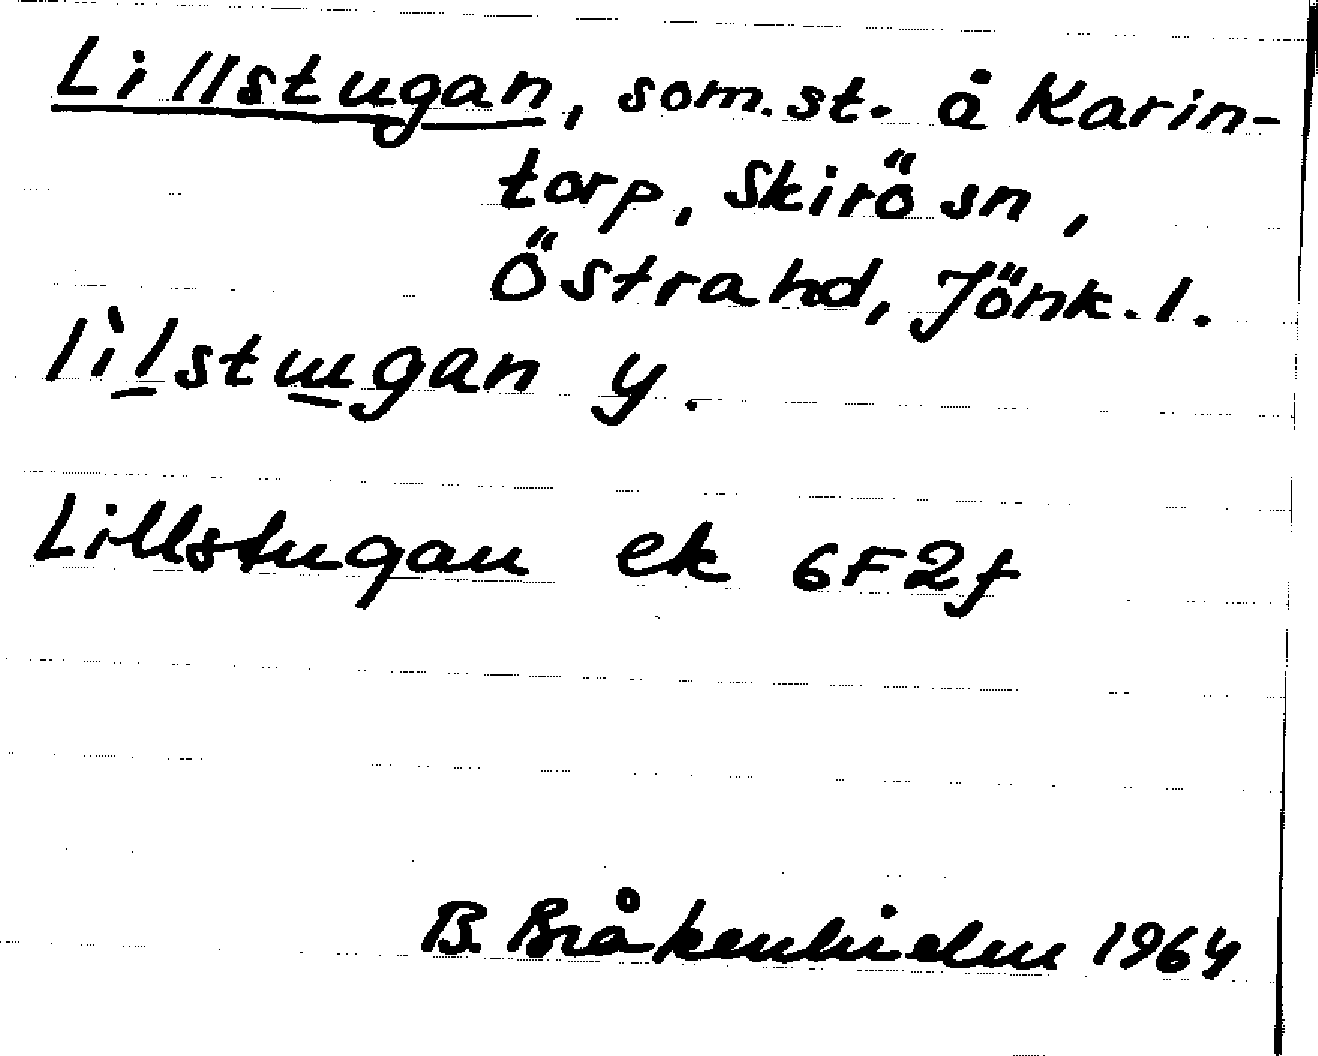 Lillstugan, som.st. å Karin-
torp, Skirö sn,
Östra hd, Jönk.l.
lìl̲stɯ̲gan y.
Lillstugan ek 6F2f
B. Bråkenhielm 1964